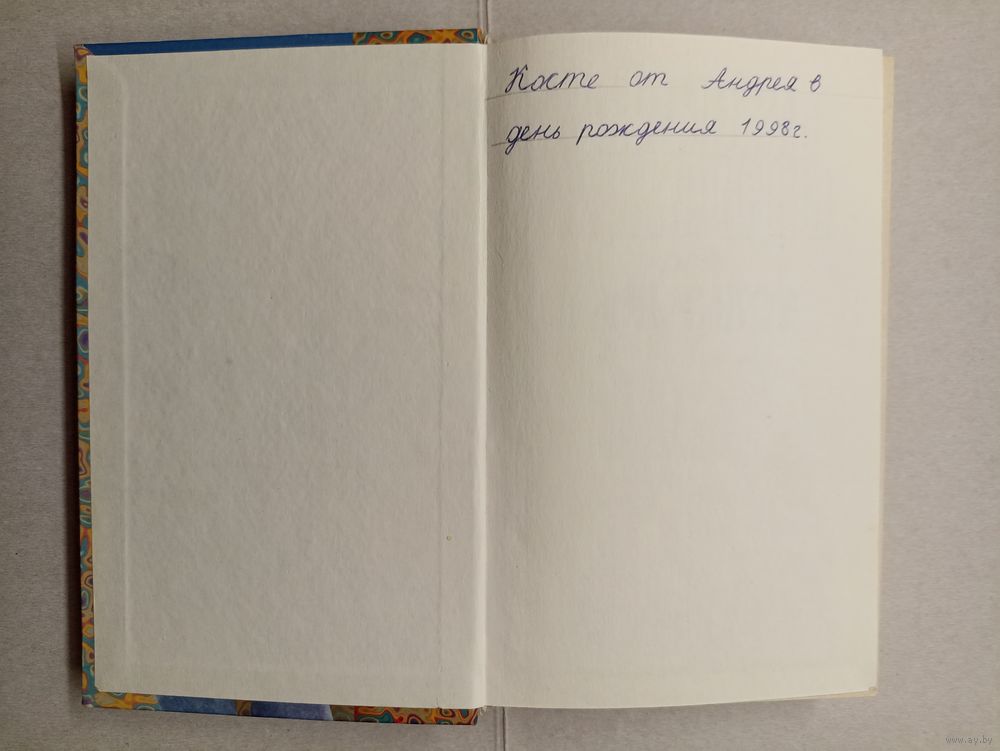 Косте от Андрея в
день рождения 1998г.
www.ay.by